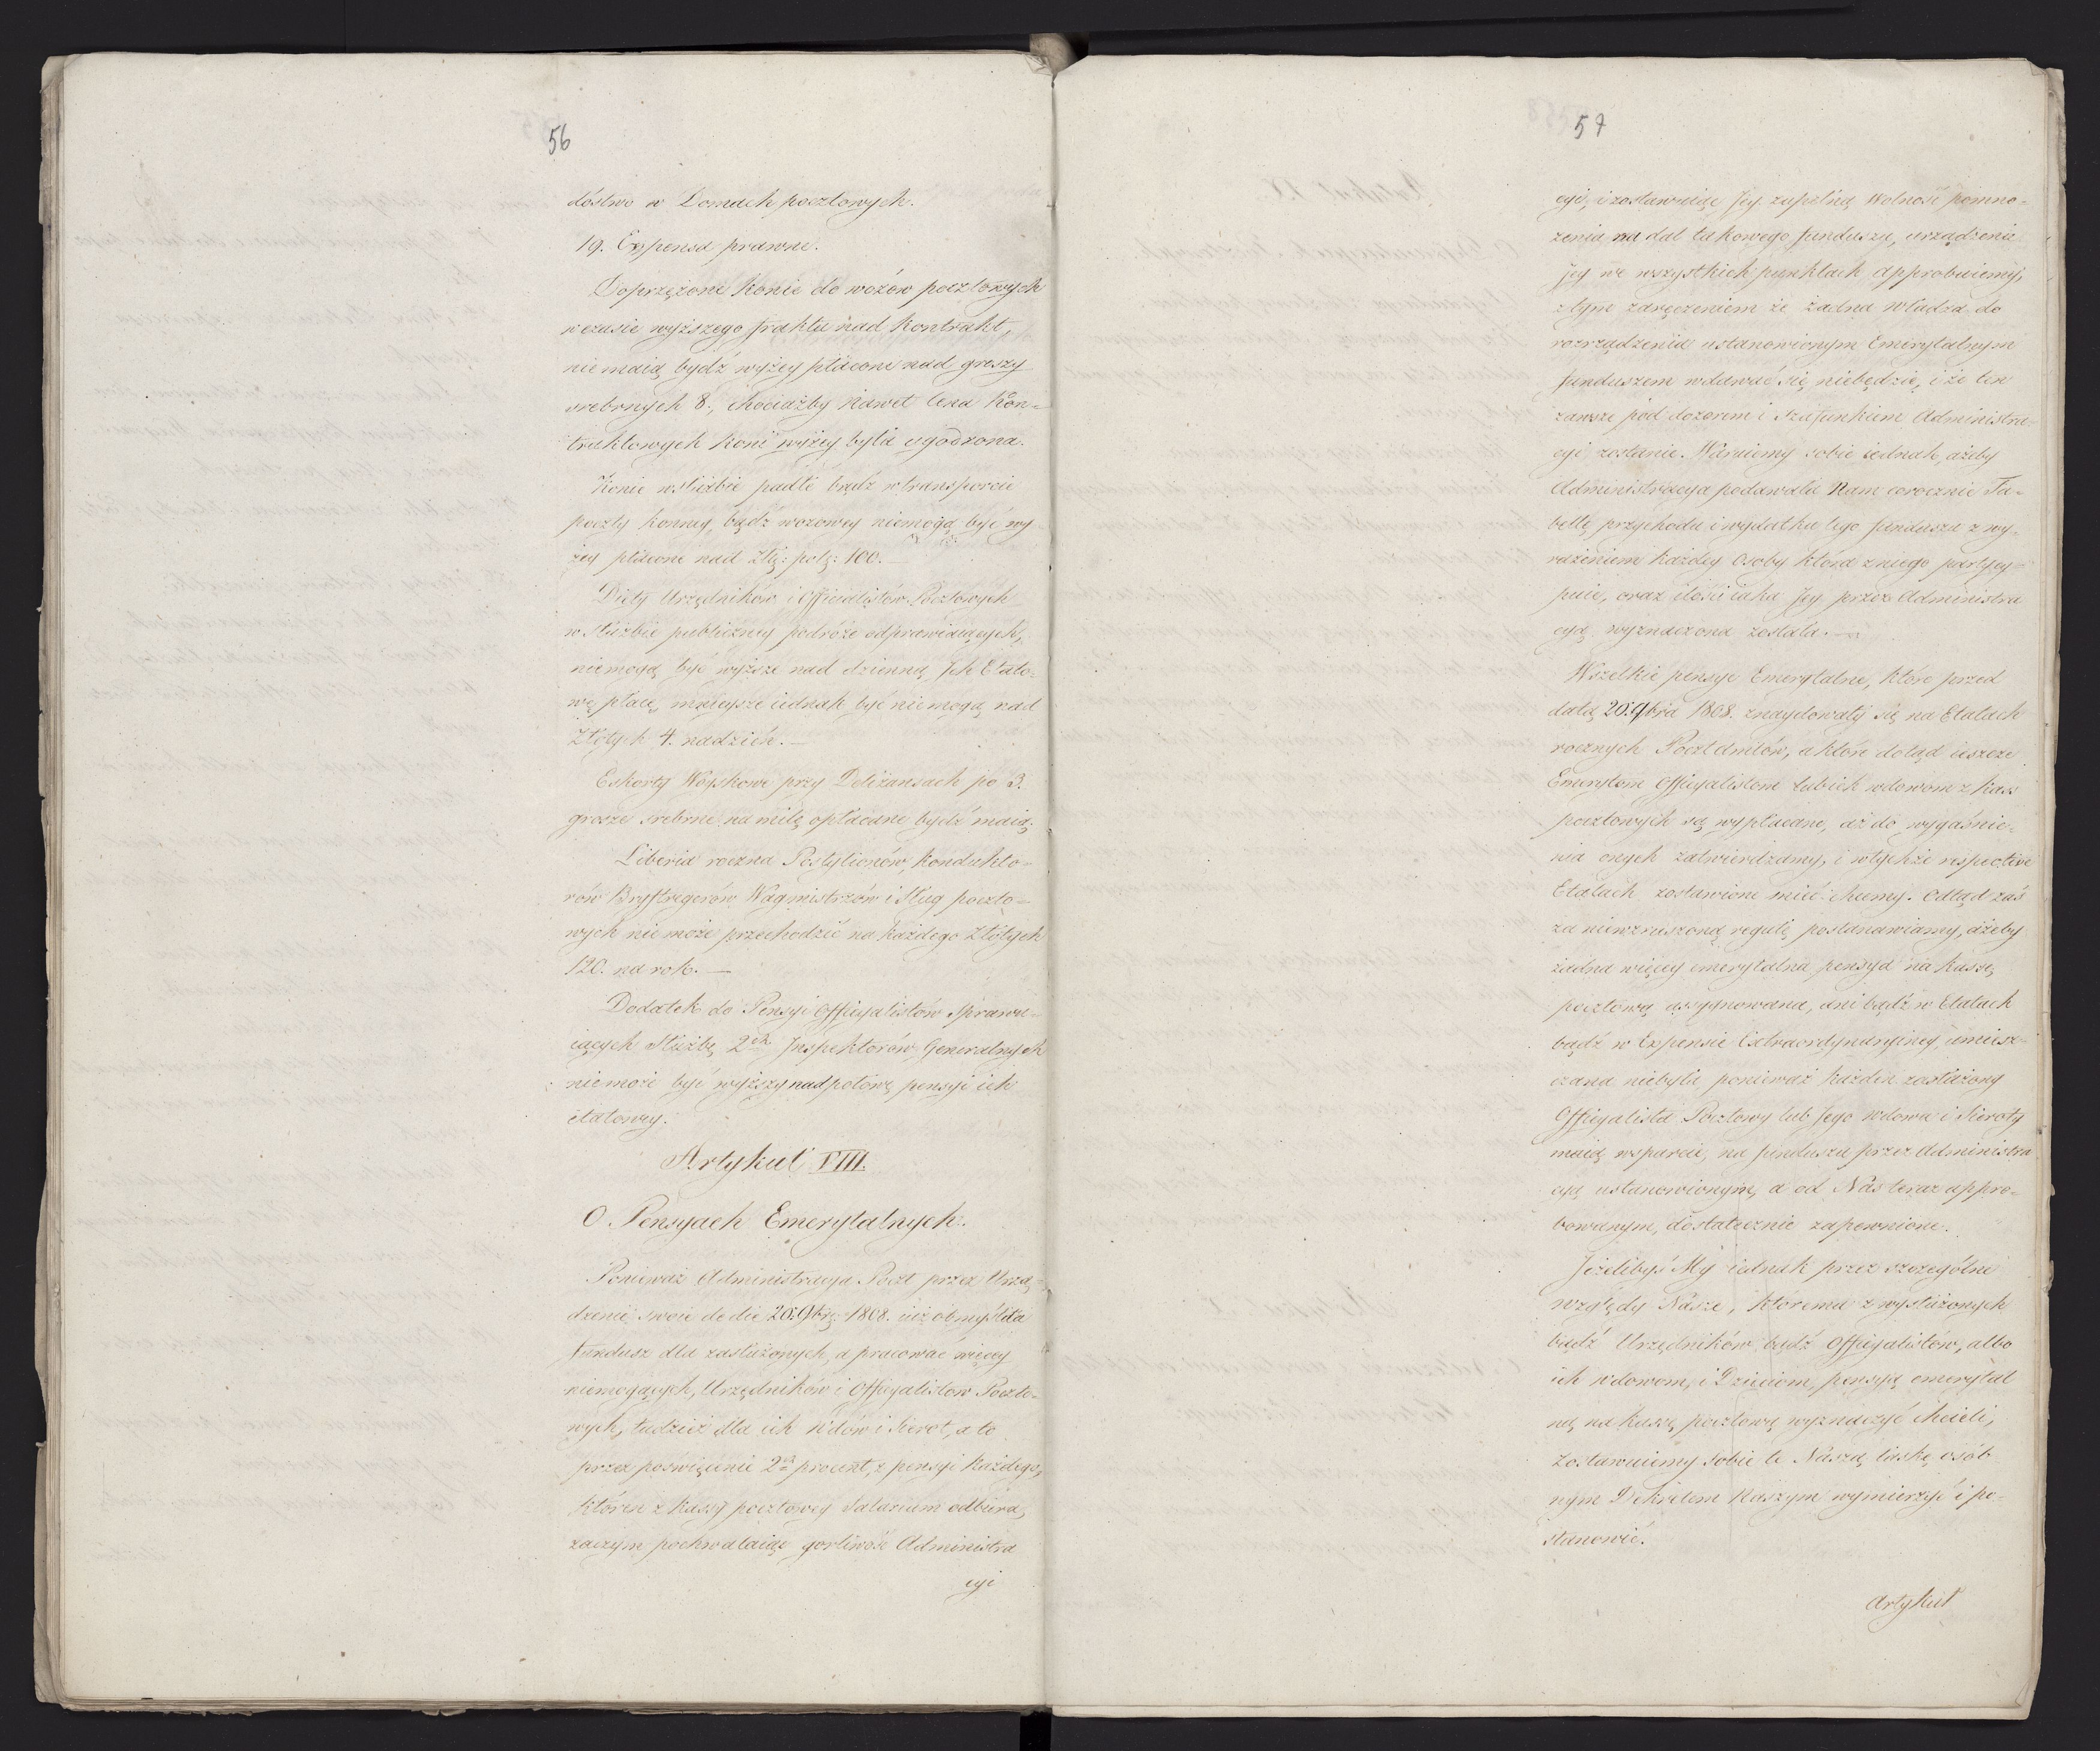 56
dóstwo w Domach pocztowych.
19. Expensa prawne.
Doprzężone konie do wozów pocztowych
w czasie wyższego fraktu nad Kontrakt,
nie maią bydź wyżey płacone nad groszy
srebrnych 8., chociażby nawet Cena Kon=
traktowych koni wyżey była ugodzona.
Konie w służbie padłe bądź w transporcie
poczty konney, bądź wozowey niemogą być wy
żey płacone nad Złł: pol: 100.—
Diety Urzędników i Officialistów Pocztowych
w Służbie publiczney podróże odprawiaiących,
niemogą być wyższe nad dzienną Jch Etato-
wą płacę, mnieysze iednak być niemogą nad
Złotych 4. na dzień.—
Eskorty Woyskowe przy Deliżansach po 3.
grosze srebrne na milę opłacane bydź maią.
Liberia roczna Postylionów, Kondukto-
rów Bryftregerów Wagmistrzów i Sług poczto=
wych nie może przechodzić na każdego Złotych
120. na rok.—
Dodatek do Pensyi Officyalistów Sprawu-
iących Służbę 2ch Jnspektorów Generalnych
nie może być wyższy nad połowę pensyi ich
etatowey.
Artykuł VIII.
O Pensyach Emerytalnych.
Ponieważ Administracya Poczt przez Urzą=
dzenie swoie de die 20. 9bra 1808. iuż obmyśliła
Fundusz dla zasłużonych, a pracować więcey
niemogących, Urzędników i Officyalistow Poczto-
wych, tudzież dla ich Wdów i Sierot, a to
przez poświęcenie 2go procent, z pensyi każdego,
któren z kassy pocztowey Salarium odbiera,
zaczym pochwalaiąc gorliwość Administra
cyi
57
cyi, i zostawuiąc Jey zupełną Wolność pomno-
żenia na dal takowego funduszu, urządzenie
Jey we wszystkich punktach approbuiemy,
z tym zaręczeniem że żadna Władza do
rozrządzenia ustanowionym Emerytalnym
funduszem wdawać się niebędzie, i że ten
zawsze pod dozorem i Szafunkiem Administra-
cyi zostanie. Waruiemy sobie iednak, ażeby
Administracya podawała Nam corocznie Ta-
bellę przychodu i wydatku tego funduszu z wy-
rażeniem każdey Osoby która z niego partycy-
puie, oraz ilości iaka Jey przez Administra
cyą wyznaczona została.—
Wszelkie pensye Emerytalne, które przed
datą 20. 9bra 1808. znaydowały się na Etatach
rocznych Pocztamtów, a które dotąd ieszcze
Emerytom Officyalistom lub ich wdowom z Kass
pocztowych są wypłacane, aż do wygaśnie-
nia onych zatwierdzamy, i w tychże respective
Etatach zostawione mieć chcemy. Odtąd zaś
za niewzruszoną regułę postanawiamy, ażeby
żadna więcey emerytalna pensya na kassę
pocztową assygnowana, ani bądź w Etatach
bądź w Expensie Extraordynaryiney, umiesz-
czana niebyła, ponieważ każden zasłużony
Officyalista Pocztowy lub Jego wdowa i Sieroty
maią wsparcie, na funduszu przez Administra
cyą ustanowionym, a od Nas teraz appro-
bowanym, dostatecznie zapewnione.
Jeżelibyś My iednak przez szczególne
względy Nasze, któremu z wysłużonych
bądź Urzędników, bądź Officyalistów, albo
ich wdowom, i Dzieciom, pensyą emerytal
ną na kassę pocztową wyznaczyć chcieli,
Zostawuiemy Sobie te Naszą łaskę osób
nym Dekretem Naszym wymierzyć i po-
stanowić.
Artykuł